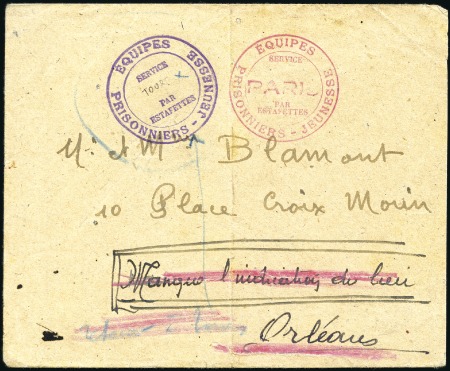 ÉQUIPES
SERVICE
TOURS
PAR
ESTAFETTES
PRISONNIERS - JEUNESSE
ÉQUIPES
SERVICE
PARIS
PAR
ESTAFETTES
PRISONNIERS - JEUNESSE
M. et M Blamont
10 Place Croix Morin
Manque l'indication du lieu
Orléans